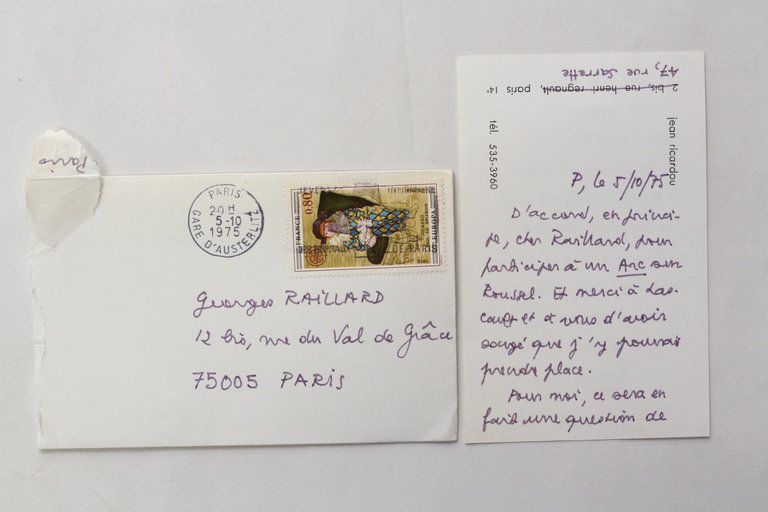 Paris
PARIS
20H
5-10
1975
GARE D'AUSTERLITZ
0.80
FRANCE
EUROPA
Georges RAILLARD
12 bis, rue du Val de Grâce
75005 PARIS
47, rue Sarrette
2 bis, rue henri regnault, paris 14e
jean ricardou
tél. 535-3960
P, le 5/10/75
D'accord, en princi-
pe, cher Raillard, pour
participer à un Arc sur
Roussel. Et merci à Las-
caut et à vous d'avoir
songé que j'y pourrai
prendre place.
Pour moi, ce sera en
fait une question de